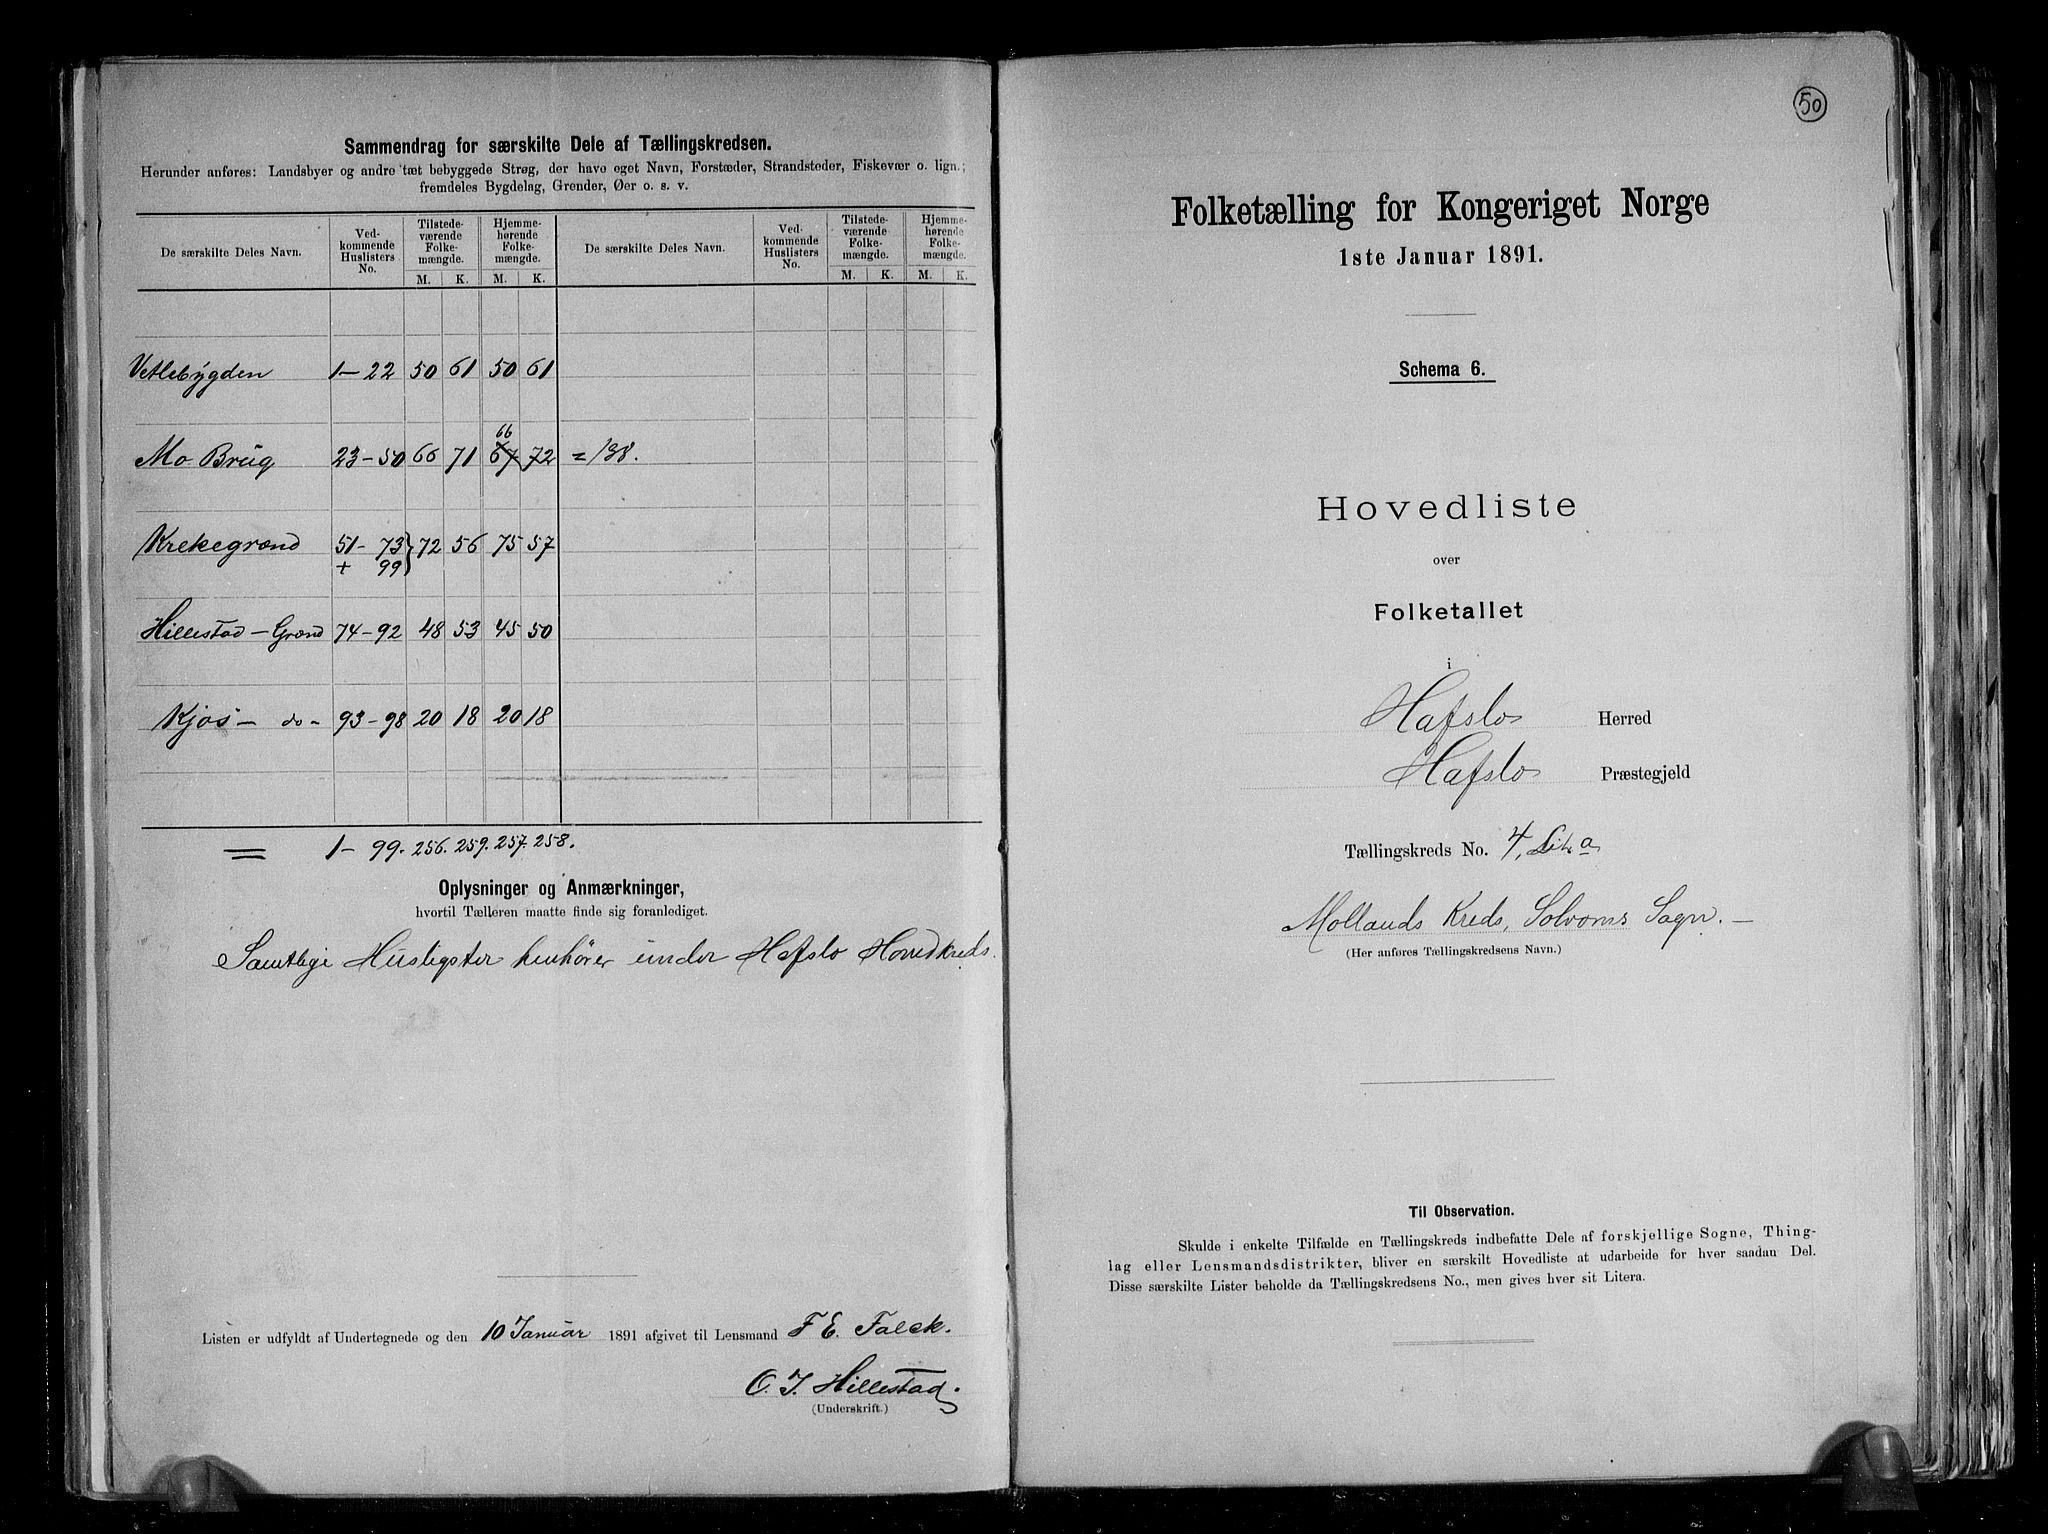 Sammendrag for særskilte Dele af Tællingskredsen.
Herunder anføres: Landsbyer og andre tæt bebyggede Strøg, der have eget Navn, Forstæder, Strandsteder, Fiskevær o. lign.;
fremdeles Bygdelag, Grender, Øer o. s. v.
De særskilte Deles Navn. Ved-kommende Huslisters No. Tilstede-værende Folke-mængde. Hjemme-hørende Folke-mængde. De særskilte Deles Navn. Ved-kommende Huslisters No. Tilstede-værende Folke-mængde. Hjemme-hørende Folke-mængde.
M. K. M. K. M. K. M. K.
Vetlebygden 1–22 50 61 50 61
66
Mo Brug 23–50 66 71 67 72 = 138.
Krekegrænd 51–73 } 72 56 75 57
+ 99
Hillestad–Grænd 74–92 48 53 45 50
Kjos – do – 93–98 20 18 20 18
= 1–99. 256. 259. 257. 258.
Oplysninger og Anmærkninger,
hvortil Tælleren maatte finde sig foranlediget.
Samtlige Husligster henhører under Hafslo Hovedkreds.
Listen er udfyldt af Undertegnede og den 10 Januar 1891 afgivet til Lensmand F E. Falck.
O. I. Hillestad.
(Underskrift.)
50
Folketælling for Kongeriget Norge
1ste Januar 1891.
Schema 6.
Hovedliste
over
Folketallet
i
Hafslo Herred
Hafslo Præstegjeld
Tællingskreds No. 4, Lit. a
Mollands Kreds, Solvorns Sogn. –
(Her anføres Tællingskredsens Navn.)
Til Observation.
Skulde i enkelte Tilfælde en Tællingskreds indbefatte Dele af forskjellige Sogne, Thing-
lag eller Lensmandsdistrikter, bliver en særskilt Hovedliste at udarbeide for hver saadan Del.
Disse særskilte Lister beholde da Tællingskredsens No., men gives hver sit Litera.